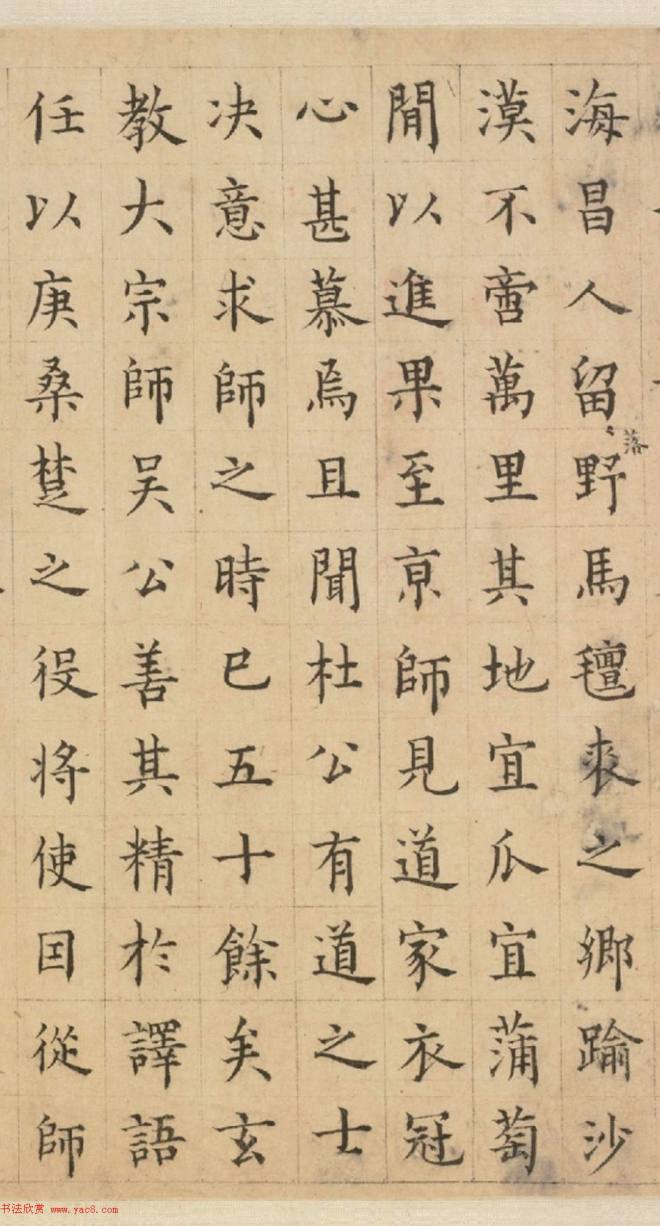 海昌人留〻落野馬氊裘之鄉踰沙
漠不啻萬里其地宜瓜宜蒲萄
閒以進果至亰師見道家衣冠
心甚慕焉且聞杜公有道之士
决意求師之時已五十餘矣玄
教大宗師吴公善其精於譯語
任以庚桑楚之役将使囙從師
书法欣赏 www.yac8.com